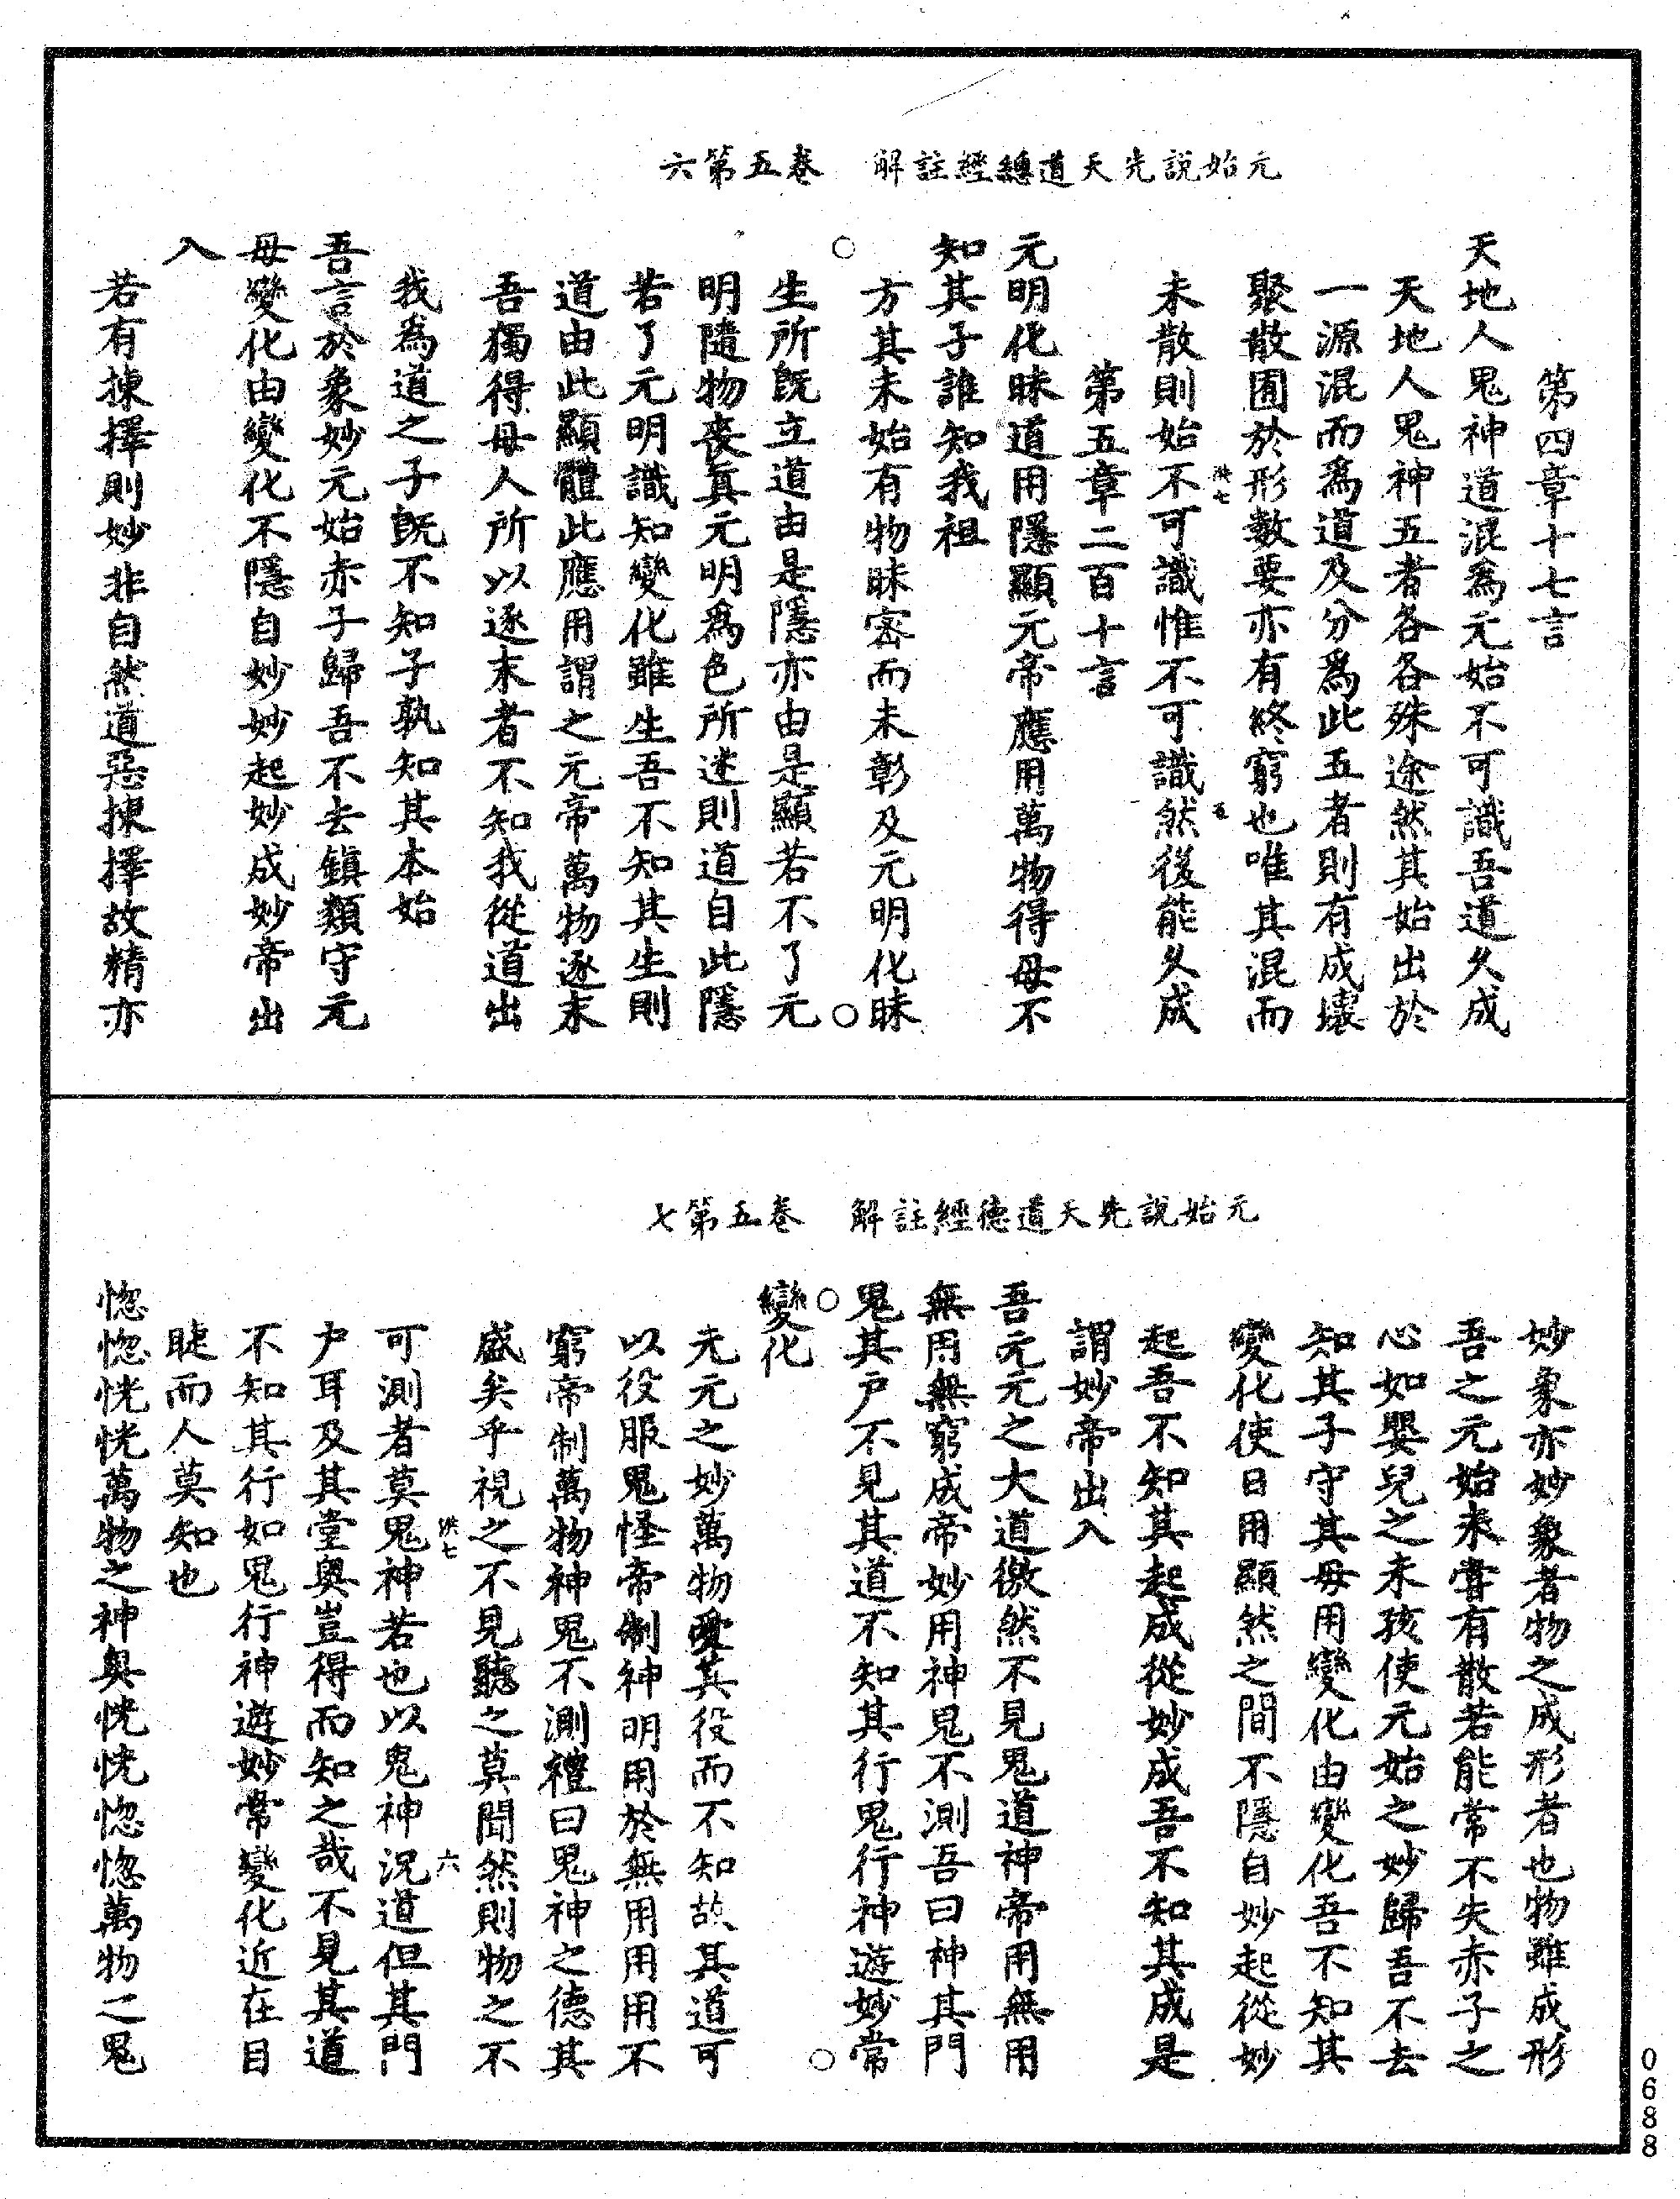 元始說先天道德經註解　卷五第六
第四章十七言
天地人鬼神道混為元始不可識吾道久成
天地人鬼神五者各各殊途然其始出於
一源混而為道及分為此五者則有成壞
聚散囿於形數要亦有終窮也唯其混而
未散則始不可識惟不可識然後能久成
第五章二百十言
元明化昧道用隱顯元帝應用萬物得母不
知其子誰知我祖
方其未始有物昧密而未彰及元明化昧
生所旣立道由是隱亦由是顯若不了元
明隨物喪真元明為色所迷則道自此隱
若了元明識知變化雖生吾不知其生則
道由此顯體此應用謂之元帝萬物逐末
吾獨得母人所以逐末者不知我從道出
我為道之子旣不知子孰知其本始
吾言於象妙元始赤子子歸吾不去鎮類守元
母變化由變化不隱自妙妙起妙成妙帝出
入
若有揀擇則妙非自然道惡揀擇故精亦
洪七
五
元始說先天道德經註解　卷五第七
妙象亦妙象者物之成形者也物雖成形
吾之元始未嘗有散若能常不失赤子之
心如嬰兒之未孩使元始之妙歸吾不去
知其子守其母用變化由變化吾不知其
變化使日用顯然之間不隱自妙起從妙
起吾不知其起成從妙成吾不知其成是
謂妙帝出入
吾元元之大道微然不見鬼道神帝用無用
無用無窮成帝妙用神鬼不測吾曰神其門
鬼其戶不見其道不知其行鬼行神遊妙常
變化
元元之妙萬物受其役而不知故其道可
以役服鬼怪帝制神明用於無用用用不
窮帝制萬物神鬼不測禮曰鬼神之德其
盛矣乎視之不見聽之莫聞然則物之不
可測者莫鬼神若也以鬼神況道但其門
戶耳及其堂奧豈得而知之哉不見其道
不知其行如鬼行神遊妙常變化近在目
睫而人莫知也
惚惚恍恍萬物之神奧恍恍惚惚萬物之鬼
洪七
六
0688